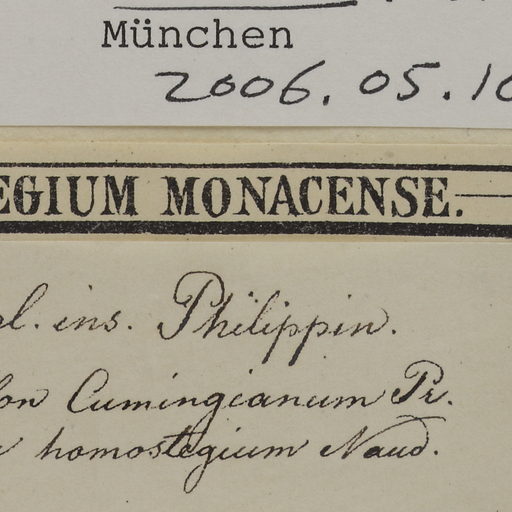 München
2006. 05. 10
EGIUM MONACENSE.
l. ins. Philippin.
lon Cumingianum Pr.
homostegium Naud.